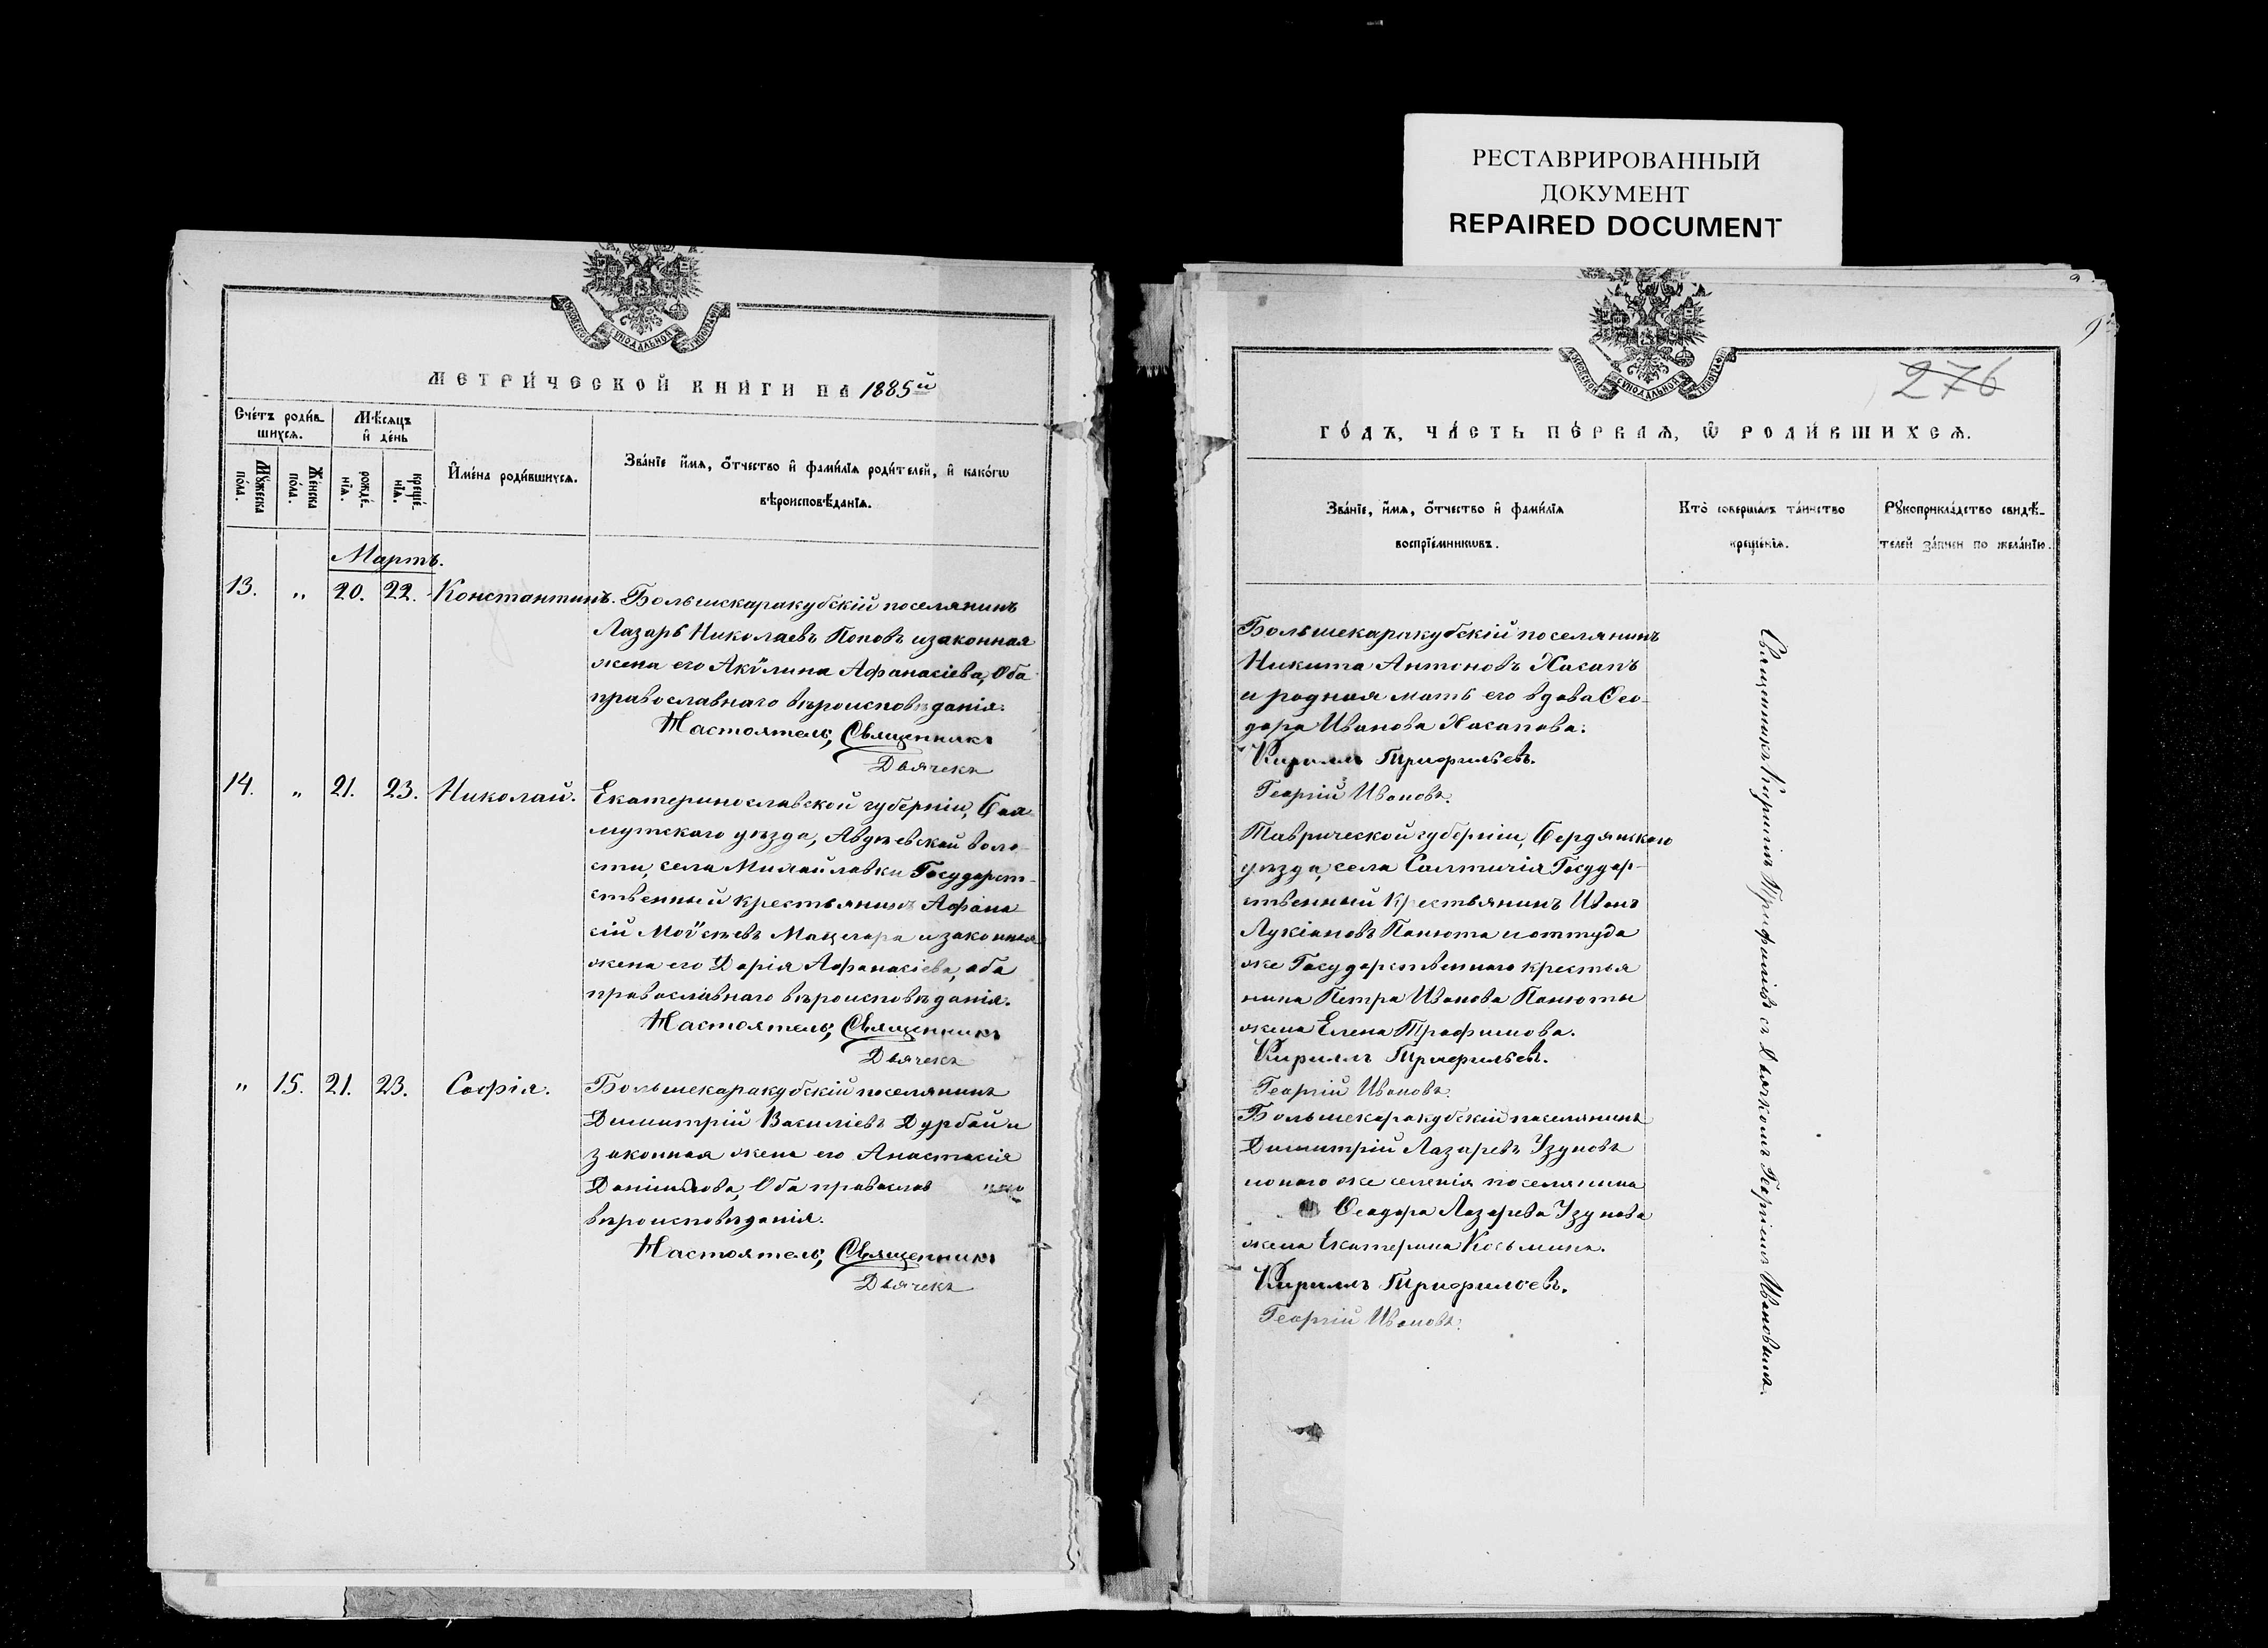 РЕСТАВРИРОВАННЫЙ
ДОКУМЕНТ
REPAIRED DOCUMENT
МЕТРИЧЕСКОЙ КНИГИ НА 1885й
Счетъ родив
шихся.
Мѣсяцъ
и день
Мужеска
пола.
Женска
пола.
рожде-
нія.
креще-
нія.
Имена родившихся.
Званіе имя, отчество и фамилія родителей, и какогѡ
вѣроисповѣданія.
Мартъ.
13. „ 20. 22. Константинъ. Большекаракубскій поселянинъ
Лазарь Николаевъ Поповъ и законная
жена его Акѵлина Афанасіева, Оба
православнаго вѣроисповѣданія.
Настоятель, Священникъ
Дьячекъ
14. „ 21. 23. Николай. Екатеринославской губерніи, Бах
мутскаго уѣзда, Авдѣевской воло
сти, села Михайловки Государст-
ственный крестьянинъ Афана
сій Моѵсѣевъ и законная
жена его Дарія Афанасіева, оба
православнаго вѣроисповѣданія.
Настоятель, Священникъ
Дьячекъ
„ 15. 21. 23. Софія. Большекаракубскій поселянинъ
Димитрій Василіевъ Дурбай и
законная жена его Анастасія
Даніилова, Оба православ
вѣроисповѣданія.
Настоятель, Священникъ
Дьячекъ
276
ГОДЪ, ЧАСТЬ ПЕРВАЯ, Ѿ РОДИВШИХСЯ.
Званіе, имя, отчество и фамилія
воспріемникѡвъ.
Кто совершалъ таинство
крещенія.
Рукоприкладство свидѣ-
телей записи по желанію.
Большекаракубскій поселянинъ
Никита Антоновъ Хасапъ
и родная мать его вдова Ѳео-
дора Иванова Хасапова.
Кириллъ Трифильевъ.
Георгій Ивановъ.
Таврической губерніи, Бердянскаго
уѣзда, села Салтичія Государ-
ственный Крестьянинъ Иванъ
Лукіановъ Панюта и оттуда
же Государственнаго крестья
нина Петра Иванова Панюты
жена Елена Трофимова.
Кириллъ Трифильевъ.
Георгій Ивановъ.
Большекаракубскій поселянинъ
Димитрій Лазаревъ Узуновъ
и онаго же селенія поселянина
Ѳеодора Лазарева Узунова
жена Екатерина Косьмина.
Кириллъ Трифильевъ.
Георгій Ивановъ.
Священникъ Кириллъ Трифильевъ съ Дьячкомъ Георгіемъ Ивановымъ.